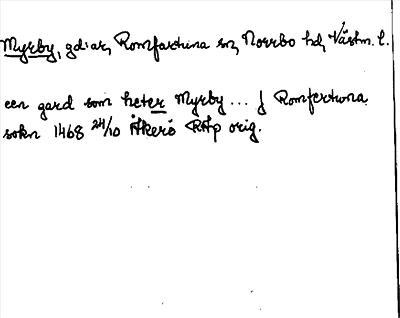 Myrby, gdar, Romfartuna sn, Norrbo hd, Västm. l.
een gard som heter Myrby... j Romfertuna
sokn 1468 24/10 Åkerö RAp orig.